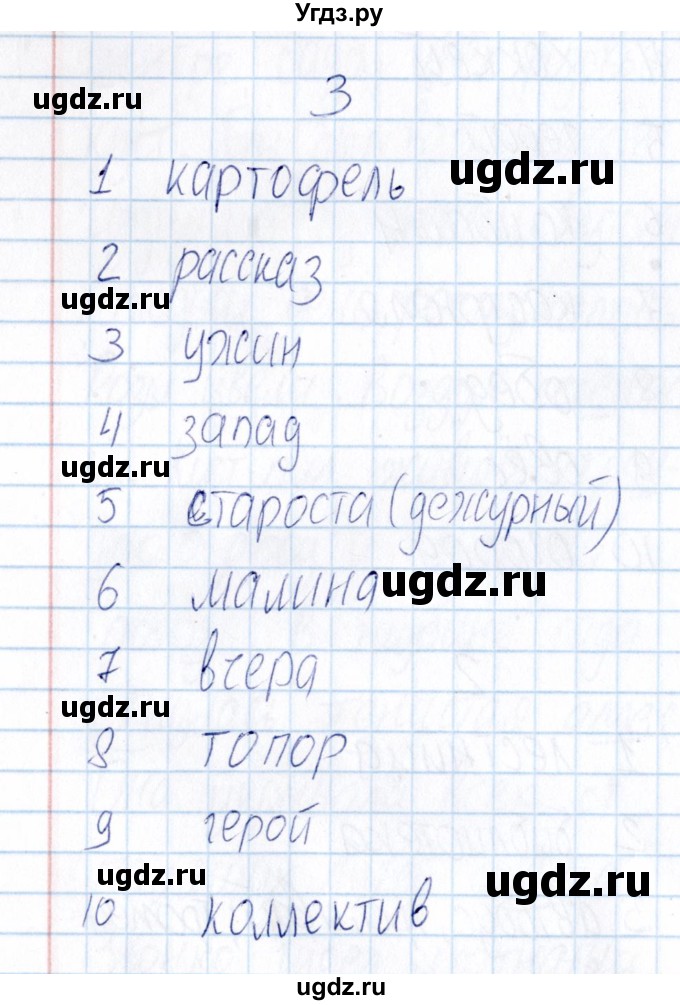 Угдз.ру
ugdz.ru
3
1 картофель
ugdz.ru
2 рассказ
ugdz.ru
3 ужин
4 запад
ugdz.ru
5 староста (дежурный)
6 малина
ugdz.ru
7 вчера
ugdz.ru
8 топор
9 герой
ugdz.ru
ugdz.ru
10 коллектив
ugdz.ru